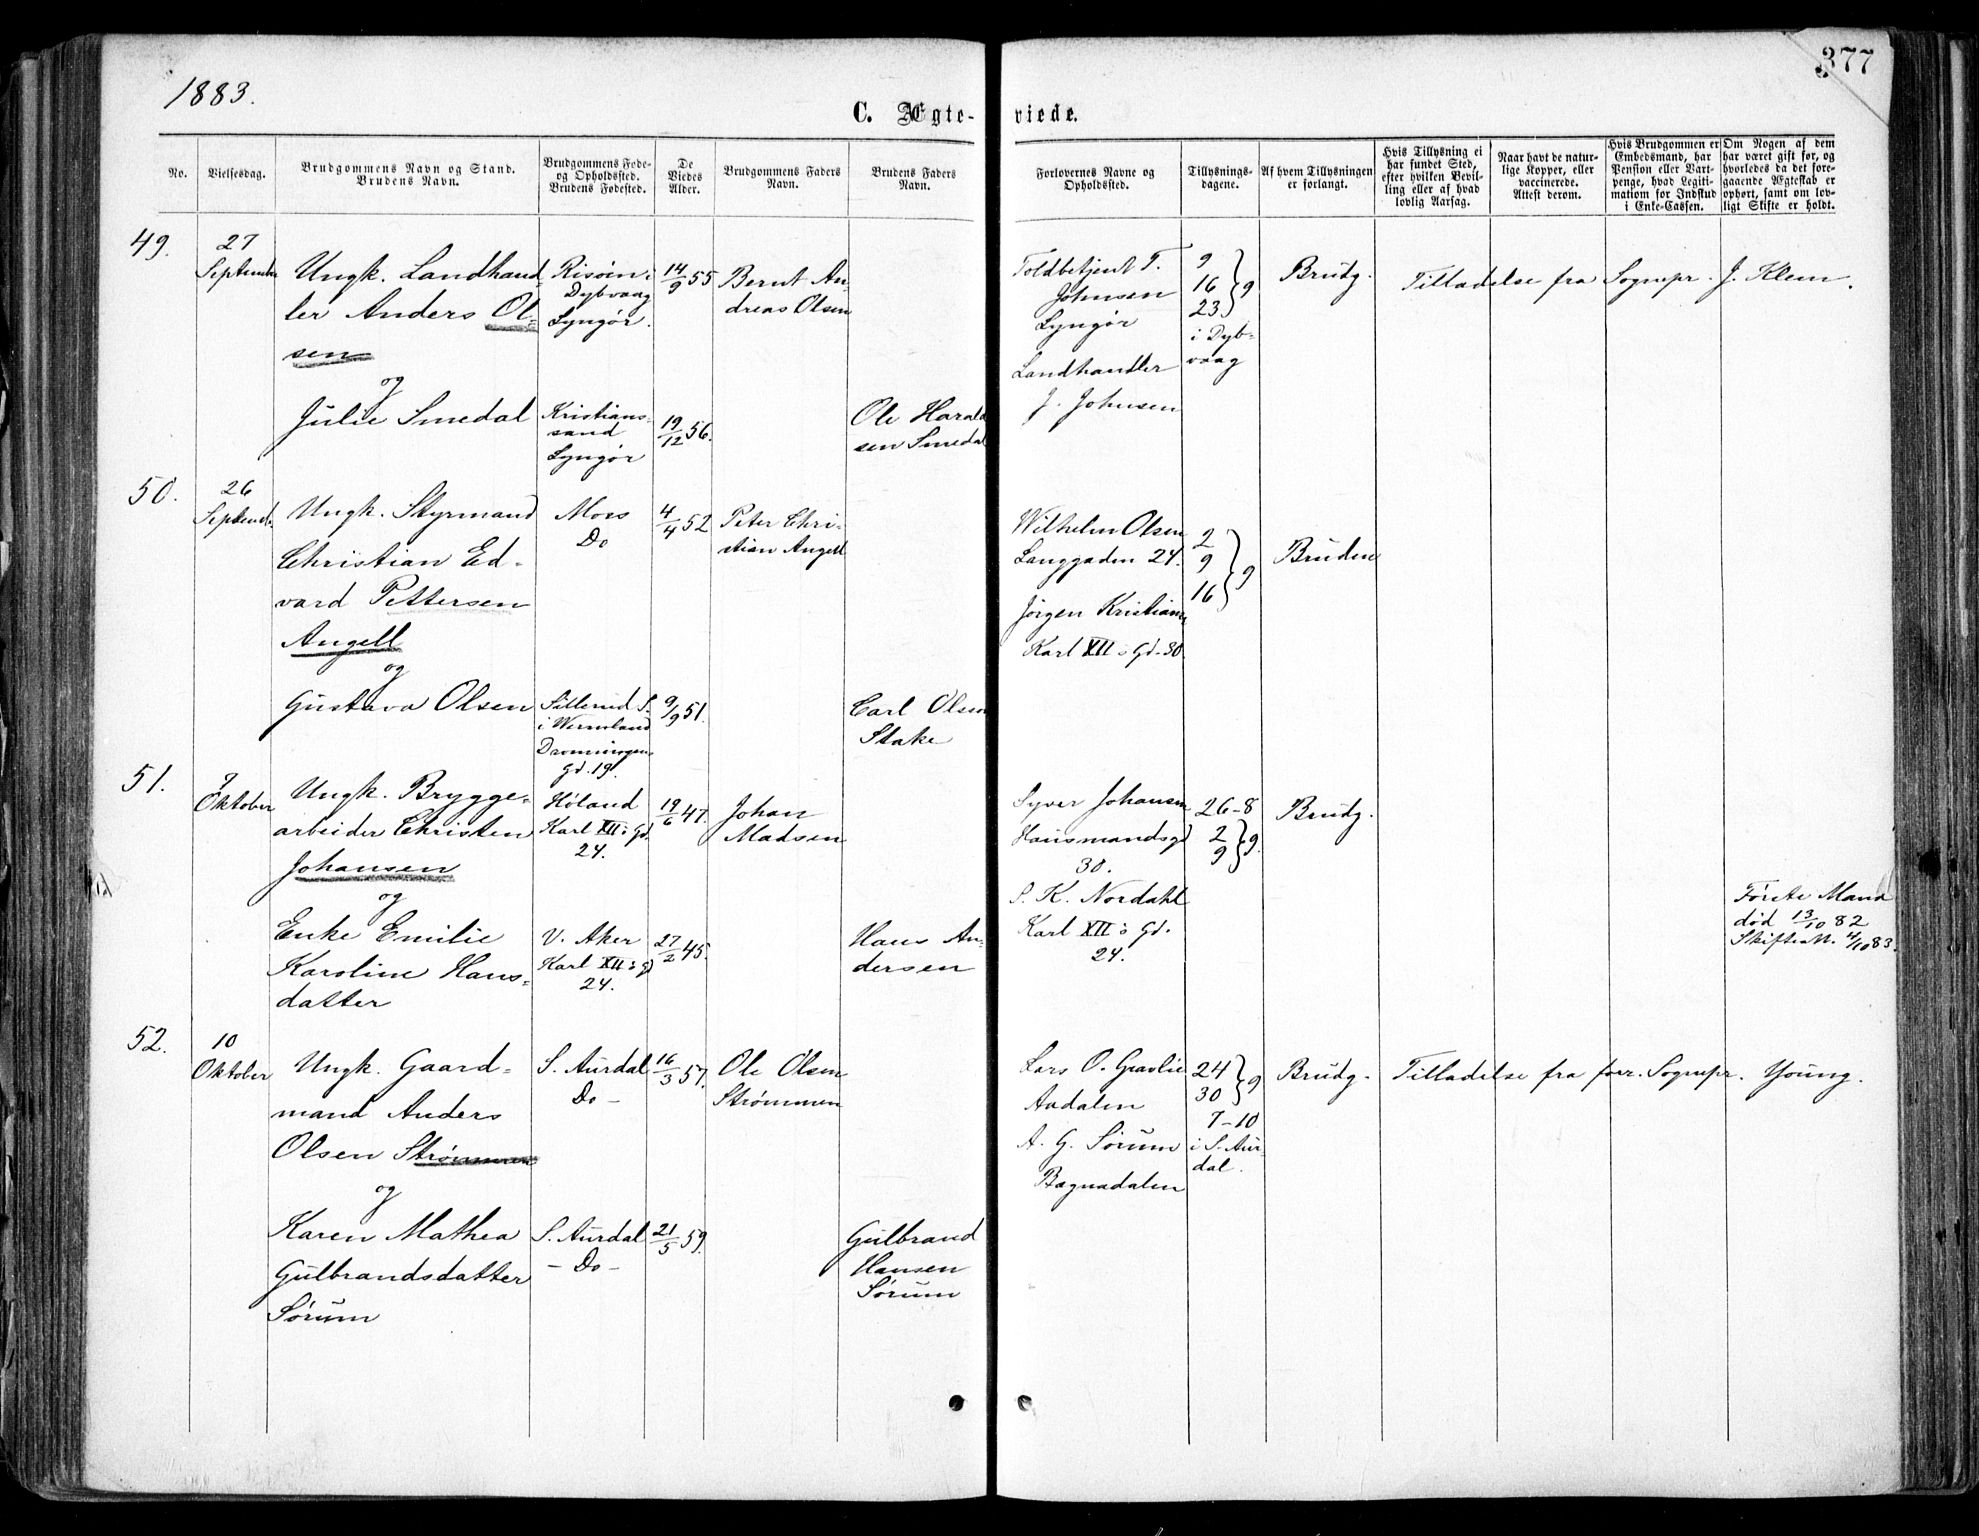 377
1883.
C. Ægteviede.
No.
Vielsesdag.
Brudgommens Navn og Stand.
Brudens Navn.
Brudgommens Føde-
og Opholdssted.
Brudens Fødested.
De
Viedes
Alder.
Brudgommens Faders
Navn.
Brudens Faders
Navn.
Forlovernes Navne og
Opholdssted.
Tillysnings-
dagene.
Af hvem Tillysningen
er forlangt.
Hvis Tillysning ei
har fundet Sted,
efter hvilken Bevil-
ling eller af hvad
lovlig Aarsag.
Naar havt de natur-
lige Kopper, eller
vaccinerede.
Attest derom.
Hvis Brudgommen er
Embedsmand, har
Pension eller Vart-
penge, hvad Legiti-
mation for Indskud
i Enke-Cassen.
Om Nogen af dem
har været gift før, og
hvorledes da det fore-
gaaende Ægteskab er
ophørt, samt om lov-
ligt Skifte er holdt.
49.
27
September
Ungk. Landhand-
ler Anders Ol-
sen
og
Julie Smedal
Risøen i
Dybvaag
Lyngør.
Kristians-
sand
Lyngør
14/9 55
19/12 56.
Bernt An-
dreas Olsen
Ole Harald
sen Smedal
Toldbetjent T.
Johnsen
Lyngør
Landhandler
J. Johnsen
9
16 } 9
23
i Dyb-
vaag
Brudg.
Tilladelse fra Sognepr. J. Klem.
50.
26
Septemb.
Ungk. Styrmand
Christian Ed-
vard Pettersen
Angell
og
Gustava Olsen
Moss
Do
Sillerud S.
i Wermland
Dronningens
Gd. 19.
4/4 52
9/9 51.
Peter Chri-
stian Angell
Carl Olsen
Stake
Wilhelm Olsen
Langgaden 24.
Jørgen Kristians
Karl XII s Gd. 30.
2
9 } 9
16
Bruden
51.
7
Oktober
Ungk. Brygge-
arbeider Christen
Johansen
og
Enke Emilie
Karoline Hans-
datter
Høland
Karl XII s Gd.
24.
V. Aker
Karl XII s Gd
24.
19/6 47.
27/2 45.
Johan
Madsen
Hans An-
dersen
Syver Johansen
Hausmandsgd
30.
S. K. Nordahl
Karl XII s Gd.
24.
26-8
2
9 } 9.
Brudg.
Første Mand
død 13/10 82
Skifteatt. 4/10 83.
52.
10
Oktober
Ungk. Gaard-
mand Anders
Olsen Strømmen
og
Karen Mathea
Gulbrandsdatter
Sørum
S. Aurdal
Do -
S. Aurdal
- Do -
16/3 57.
21/5 59.
Ole Olsen
Strømmen
Gulbrand
Hansen
Sørum
Lars O. Gravlie
Aadalen
A. G. Sørum
Bagnadalen
24
30 } 9
7-10
i S. Aur-
dal.
Brudg.
Tilladelse fra forr. Sognepr. Young.